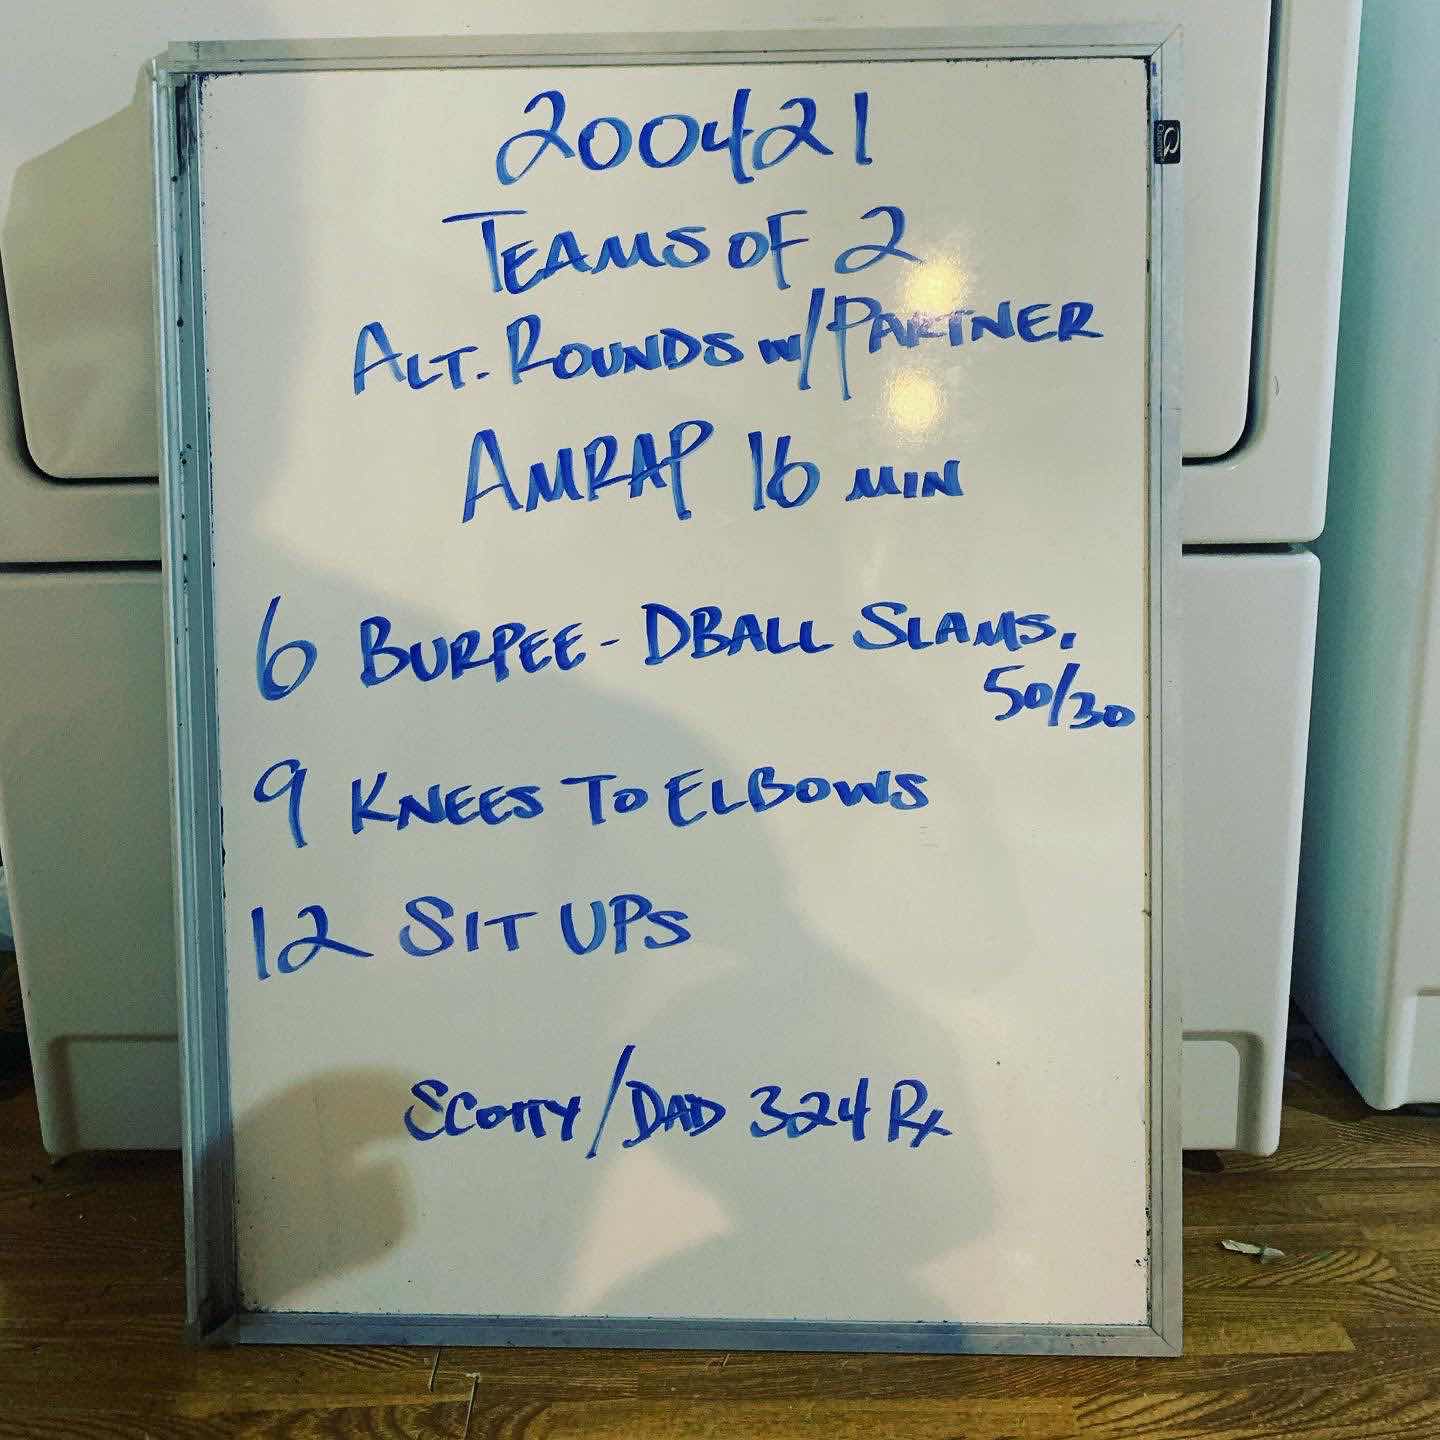 200421
TEAMS OF 2
ALT. ROUNDS W/PARTNER
AMRAP 16 MIN
6 BURPEE - DBALL SLAMS.
50/30
9 KNEES TO ELBOWS
12 SIT UPS
SCOTTY/DAD 324 Rx
Quartet